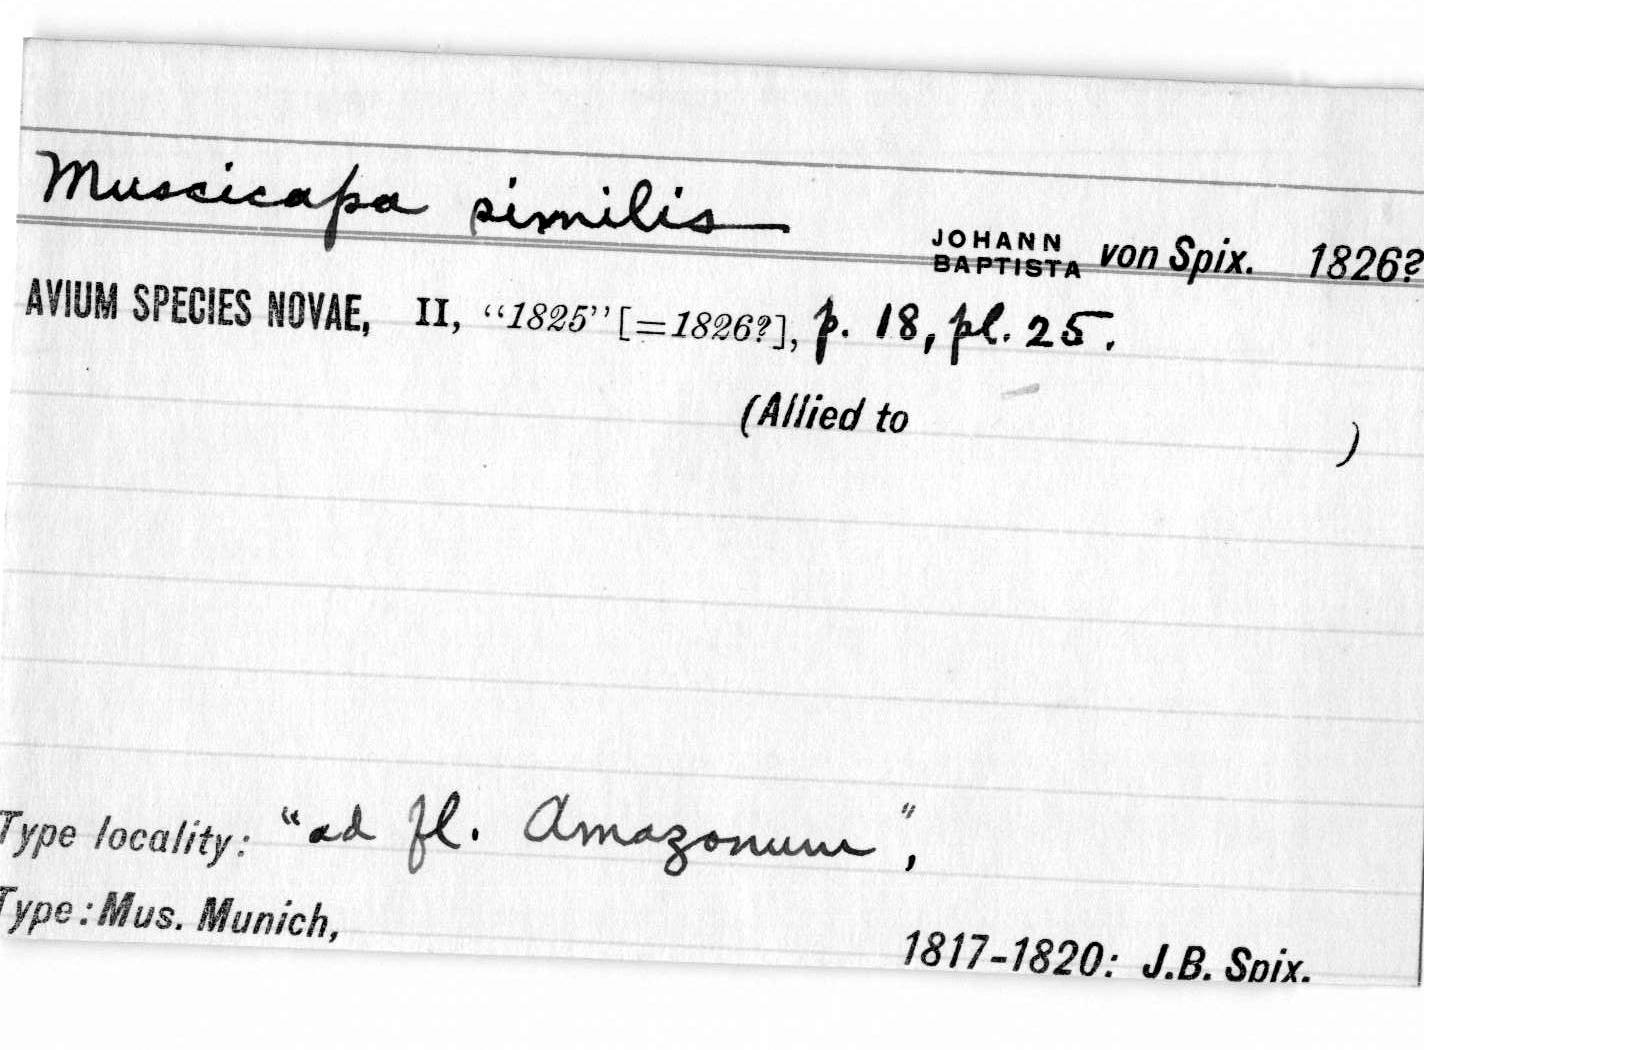 Muscicapa similis JOHANN BAPTISTA von Spix. 1826?
AVIUM SPECIES NOVAE, II, “1825” [=1826?], p. 18, pl. 25.
(Allied to )
Type locality: “ad fl. Amazonum”,
Type: Mus. Munich,
1817-1820: J.B. Spix.